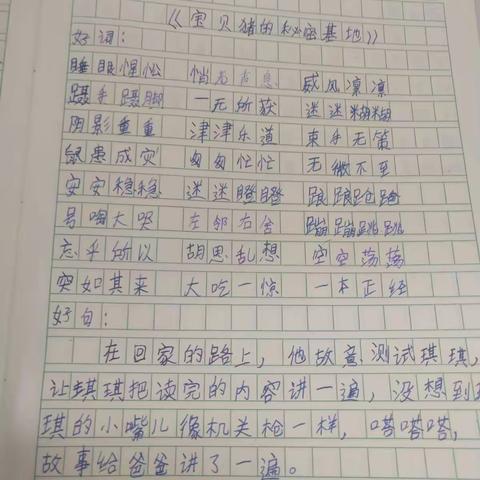 《宝贝猪的秘密基地》
好词:
睡眼惺忪 悄无声息 威风凛凛
蹑手蹑脚 一无所获 迷迷糊糊
阴影重重 津津乐道 束手无策
鼠患成灾 匆匆忙忙 无微不至
安安稳稳 迷迷瞪瞪 踉踉跄跄
号啕大哭 左邻右舍 蹦蹦跳跳
忘乎所以 胡思乱想 空空荡荡
突如其来 大吃一惊 一本正经
好句:
在回家的路上,他故意测试琪琪,
让琪琪把读完的内容讲一遍,没想到
琪的小嘴儿像机关枪一样,嗒嗒嗒,
故事给爸爸讲了一遍。